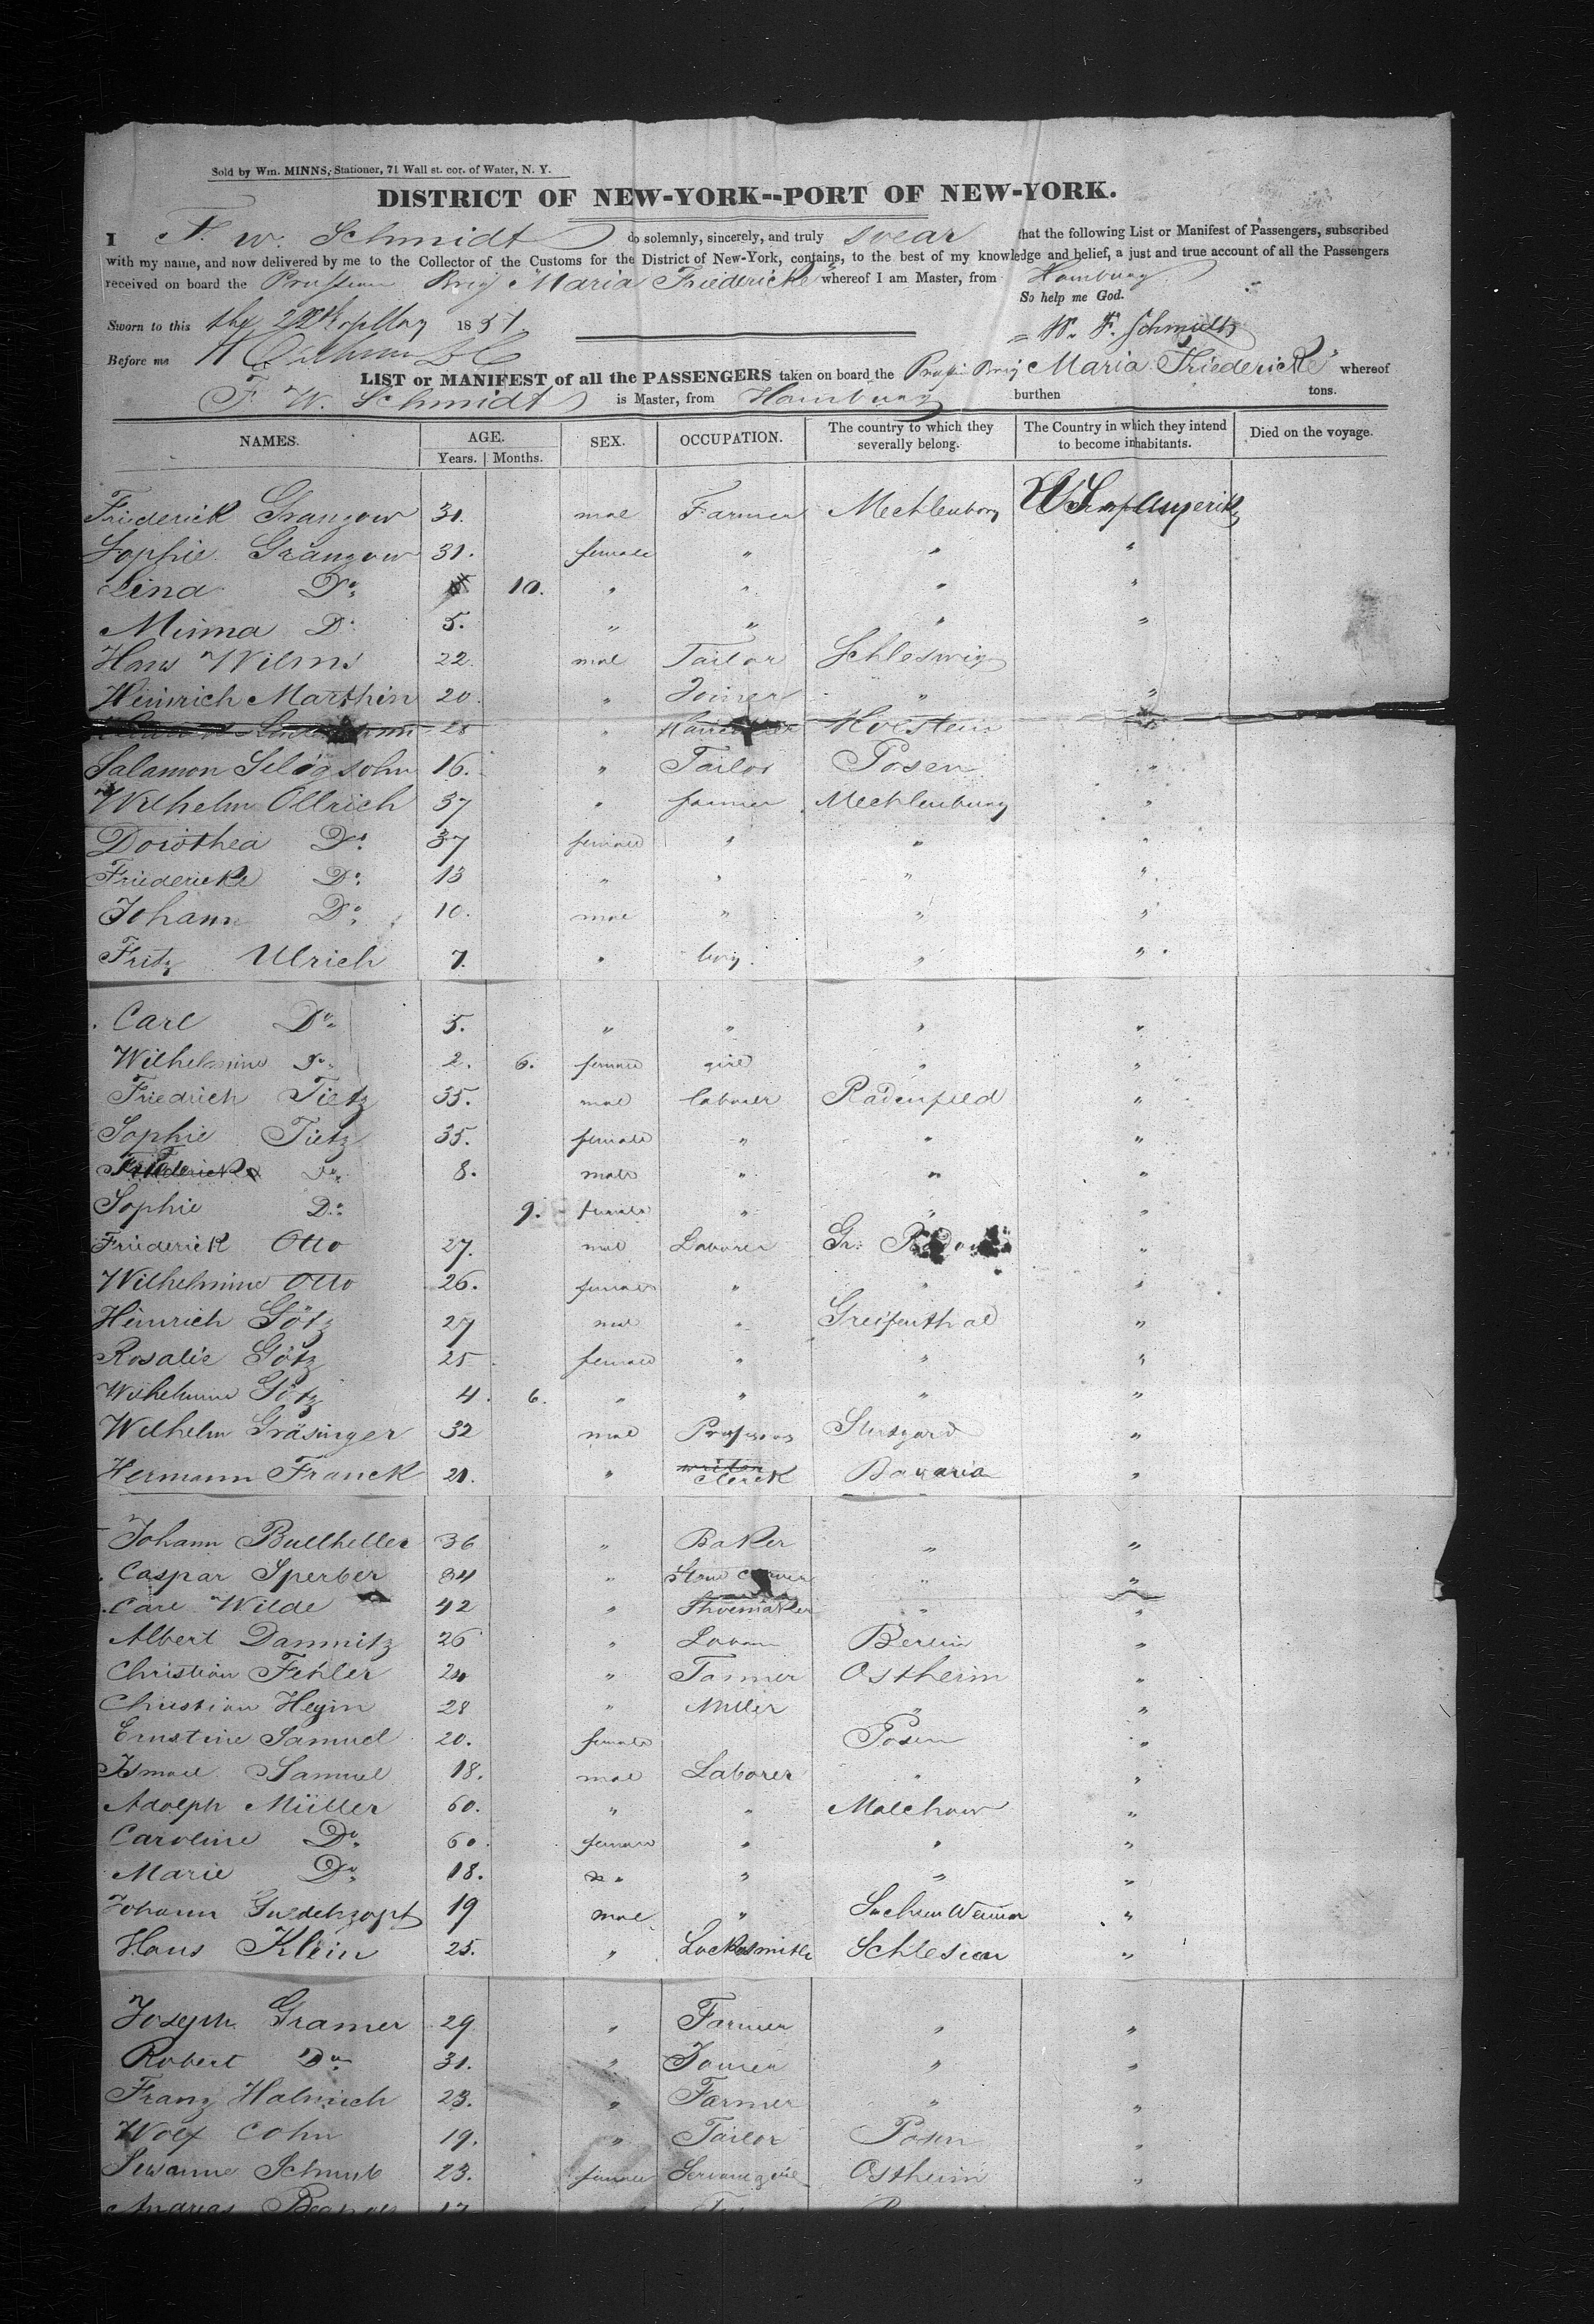 Sold by Wm. MINNS, Stationer, 71 Wall st. cor. of Water, N. Y.
DISTRICT OF NEW-YORK--PORT OF NEW-YORK.
I F. W. Schmidt do solemnly, sincerely, and truly swear that the following List or Manifest of Passengers, subscribed
with my name, and now delivered by me to the Collector of the Customs for the District of New-York, contains, to the best of my knowledge and belief, a just and true account of all the Passengers
received on board the Prussian Brig "Maria Friedericke" whereof I am Master, from Hamburg
So help me God.
Sworn to this the 22th of May 1851. W. F. Schmidt
Before me
LIST or MANIFEST of all the PASSENGERS taken on board the Brig Maria Friedericke" whereof
F. W. Schmidt is Master, from Hamburg burthen tons.
NAMES. AGE. SEX. OCCUPATION. The country to which they severally belong. The Country in which they intend to become inhabitants. Died on the voyage.
Years. Months.
Friederick Granzow 31. mal Farmer Mecklenborg US of Amerika
Sophie Granzow 31. female " " "
Lina Do 10. " " " "
Minna Do 5. " " " "
Hans Wilms 22. mal Tailor Schleswig
Heinrich Marthin 20. " Joiner " "
28 " Holstein "
Salamon Seligsohn 16. " Tailor Posen "
Wilhelm Ollrich 37 " farmer Mecklenburg "
Dorothea Do 37 female " " "
Friedericke Do 13 " " " "
Johann Do 10. mal " " "
Fritz Ulrich 7. " boy. " "
Carl Do 5. " " " "
Wilhelmine Do 2. 6. female girl " "
Friedrich Tietz 35. mal laborer Radenfeld "
Sophie Tietz 35. female " " "
Do 8. male " " "
Sophie Do 9. female " " "
Friederick Otto 27. mal Laborer Gr. "
Wilhelmine Otto 26. female " " "
Heinrich Götz 27 mal " Greifenthal "
Rosalie Götz 25 female " " "
Wilhelmine Götz 4. 6. " " " "
Wilhelm Gräsinger 32 mal "
Hermann Franck 21. " Clerck Bavaria "
Johann Bullheller 36 " Baker " "
Caspar Sperber 34 " " "
Carl Wilde 42 " Shoemaker " "
Albert Dannitz 26 " Berlin "
Christian Fehler 24 " Tanner Ostheim "
Christian Heyin 28 " Miller " "
Ernstine Samuel 20. female Posen "
Samuel 18. mal Laborer " "
Adolph Müller 60. " " Malchow "
Caroline Do 60. female " " "
Marie Do 18. " " " "
Johann 19 mal " Sachsen Weimar "
Hans Klein 25. " Locksmith Schlesien "
Joseph Gramer 29 " Farmer " "
Robert Do 31. " " "
Franz Halmich 23. " Farmer " "
Wolf Cohn 19. " Tailor Posen "
Susanne 23. female Servantgirl Ostheim "
Andreas 17